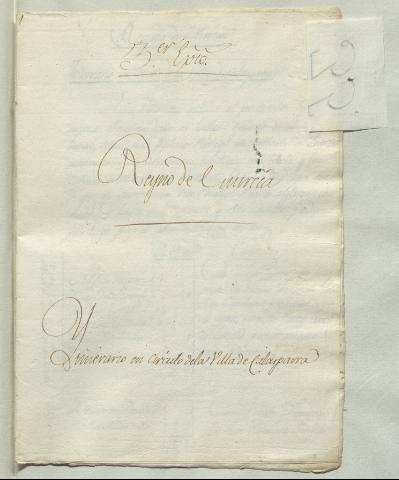 3.er Exto.
Reyno de Murcia
Ytinerario en circulo de la Villa de Calasparra